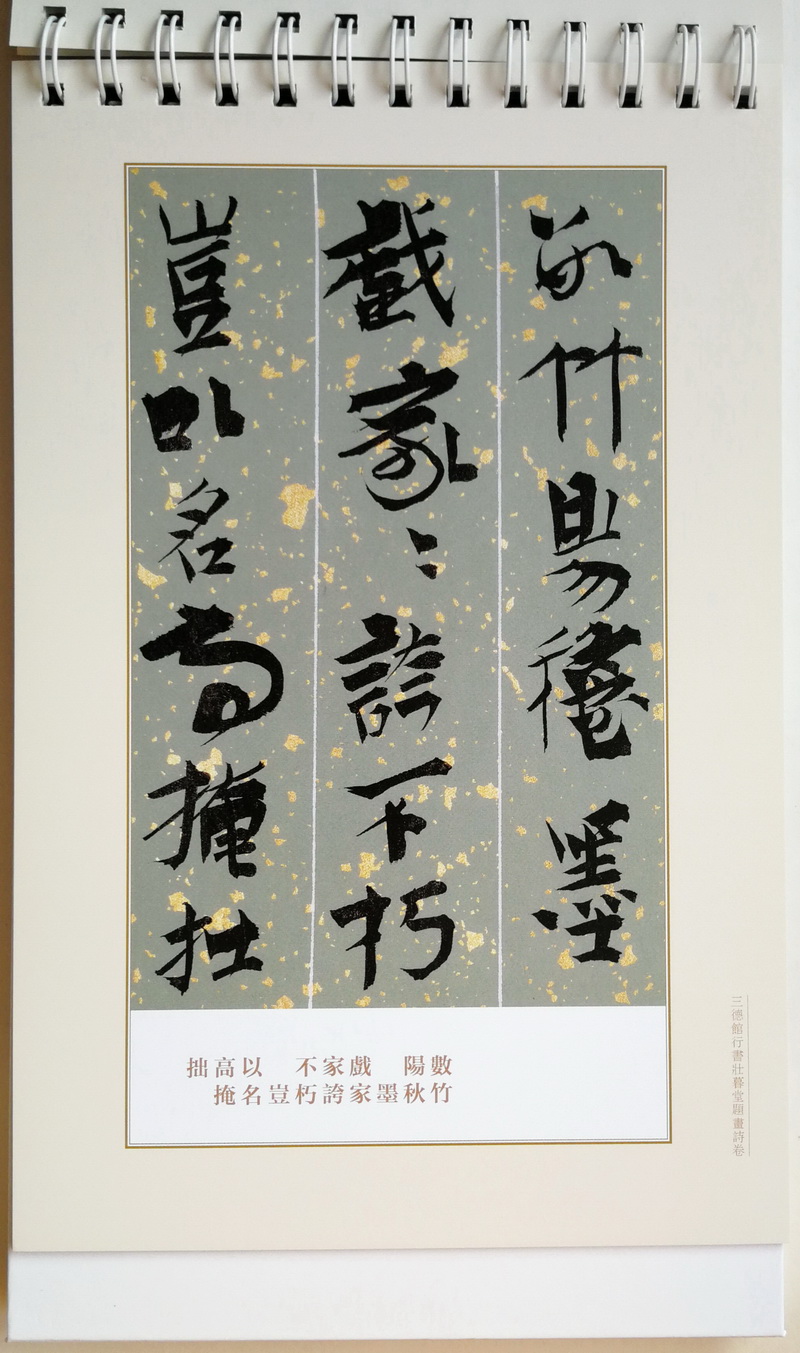 數竹陽秋墨
戲家〻誇不朽
豈以名高掩拙
數竹
陽秋
墨
戲家
家誇
不朽
豈
以名
高掩
拙
三德館行書壯暮堂題畫詩卷